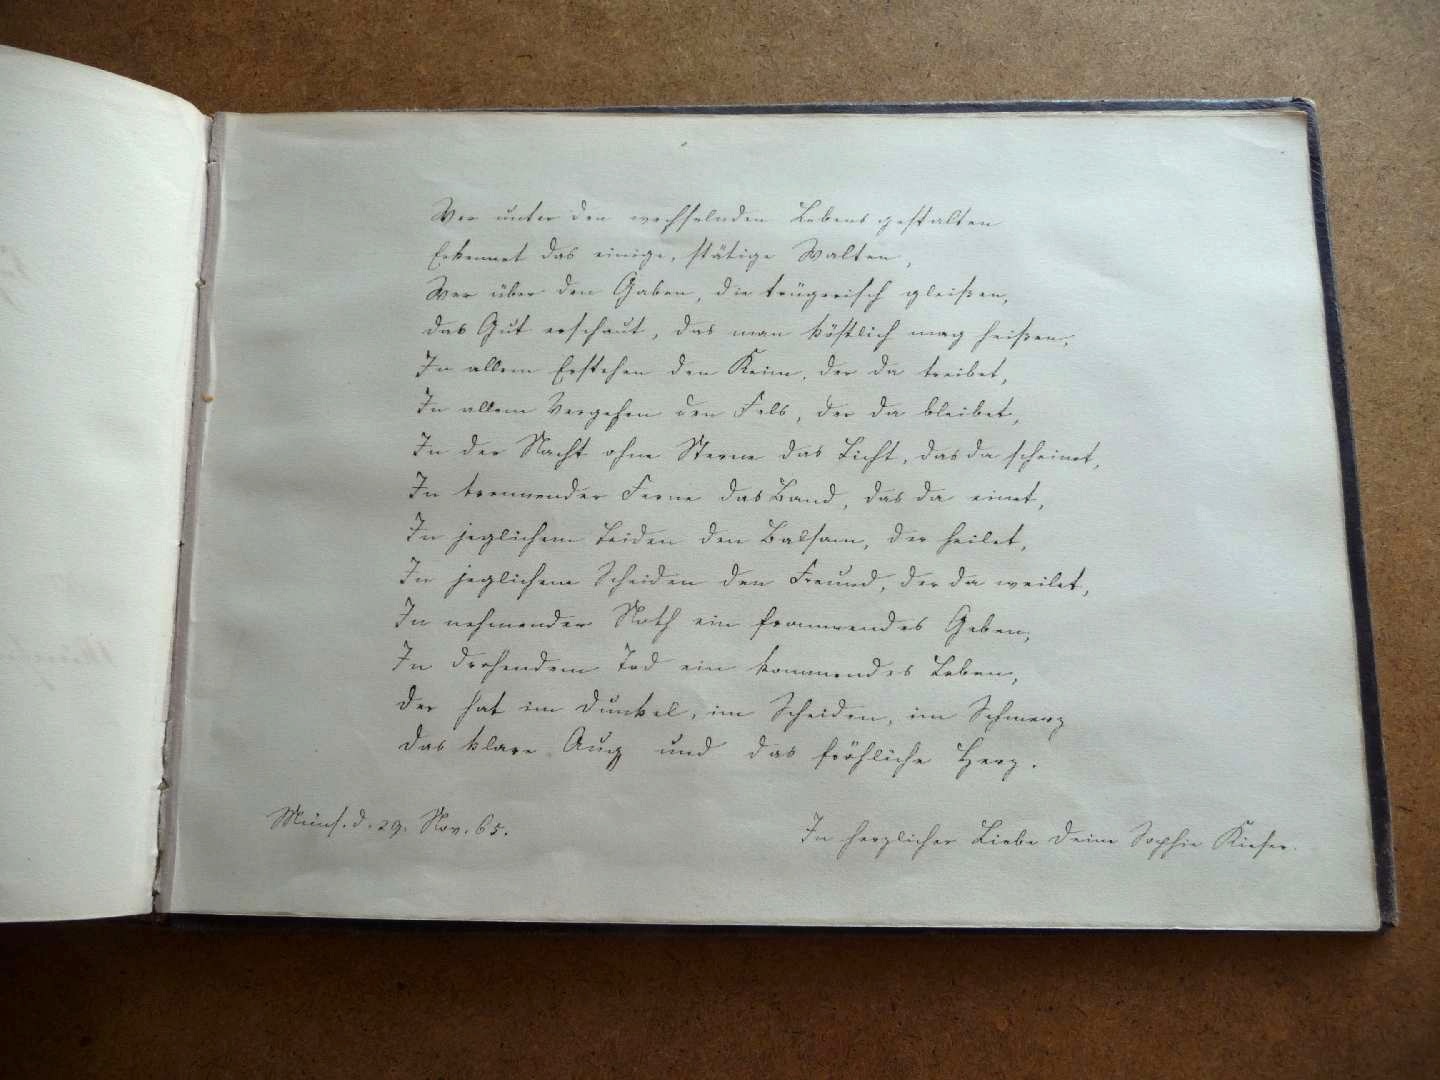 Wer unter den wechselnden Lebens gestalten
Erkennet das einige, stätige Walten,
Wer über den Gaben, die trügerisch gleißen,
das Gut erschaut, das man köstlich mag heißen,
In allem Erstehen den Keim, der da treibet,
In allem Vergehen den Fels, der da bleibet,
In der Nacht ohne Sterne das Licht, das da scheinet,
In trennender Ferne das Band, das da einet,
In jeglichem Leiden den Balsam, der heilet,
In jeglichem Scheiden den Freund, der da weilet,
In nehmender Noth ein frommendes Geben,
In drohendem Tod ein kommendes Leben,
der hat im Dunkel, im Scheiden, im Schmerz
das klare Aug und das fröhliche Herz.
d. 29. Nov. 65.
In herzlicher Liebe deine Sophie